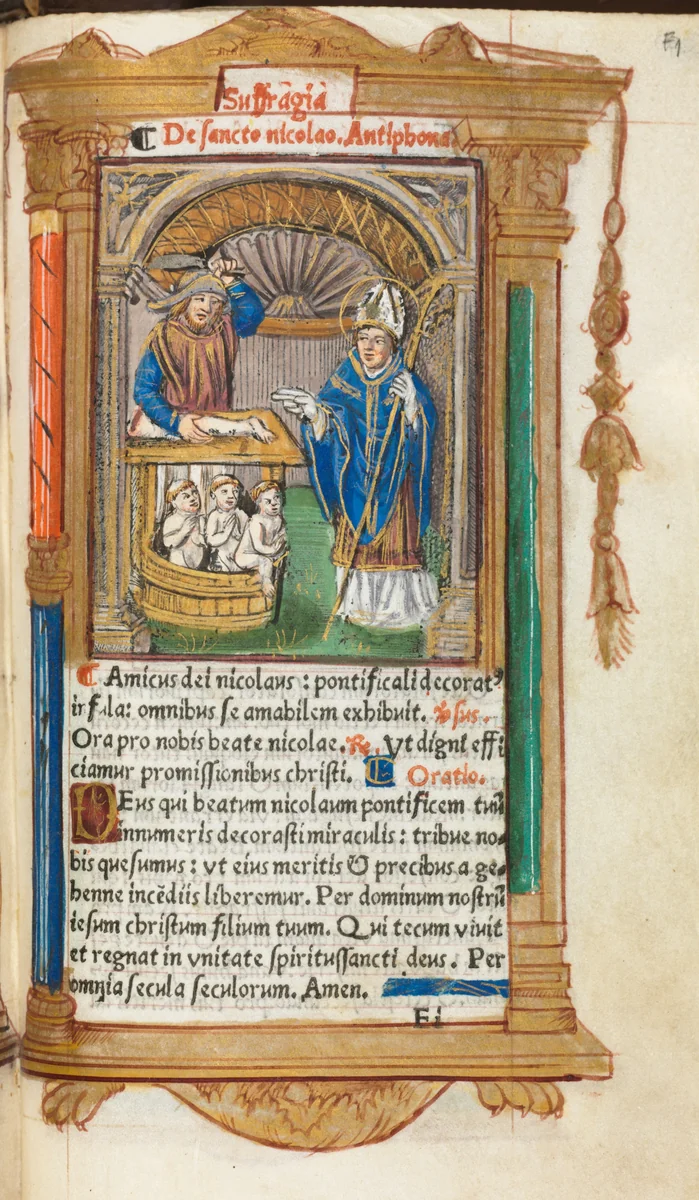 Suffrāgiā
De sancto nicolao. Antiphona.
Amicus dei nicolaus : pontificali decorat⁹
infula: omnibus se amabilem exhibuit. ℣sus.
Ora pro nobis beate nicolae. ℟. Vt digni effi
ciamur promissionibus christi. Oratio.
DEus qui beatum nicolaum pontificem tuū
innumeris decorasti miraculis : tribue no-
bis quesumus : vt eius meritis & precibus a ge-
henne incēdiis liberemur. Per dominum nostrū
iesum christum filium tuum. Qui tecum viuit
et regnat in vnitate spiritussancti deus. Per
omnia secula seculorum. Amen.
F.i